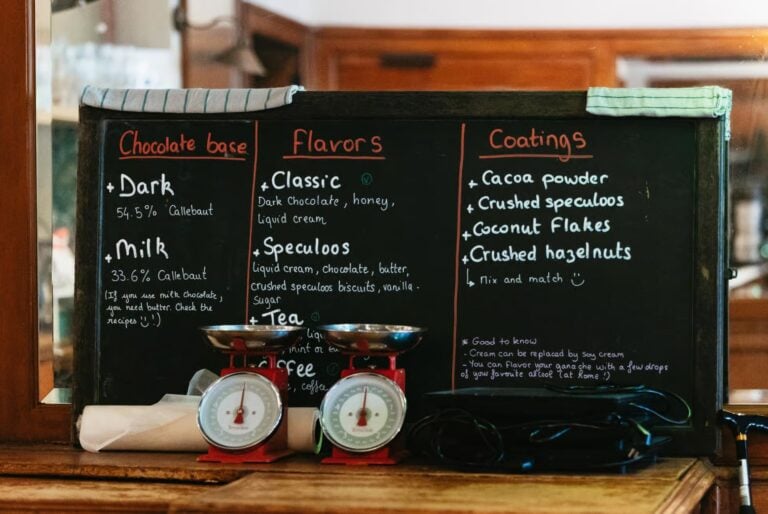 Chocolate base
+ Dark
54.5% Callebaut
+ Milk
33.6% Callebaut
(If you use milk chocolate,
you need butter. Check the
recipes !)
Flavors
+ Classic
Dark chocolate, honey,
liquid cream
+ Speculoos
liquid cream, chocolate, butter,
crushed speculoos biscuits, vanilla-
sugar
+ Tea
mint or
coffee
Coatings
+ Cacoa powder
+ Crushed speculoos
+ Coconut Flakes
+ Crushed hazelnuts
Mix and match
* Good to know
- Cream can be replaced by soy cream
- You can flavor your ganache with a few drops
of your favoute alcool (at home !)